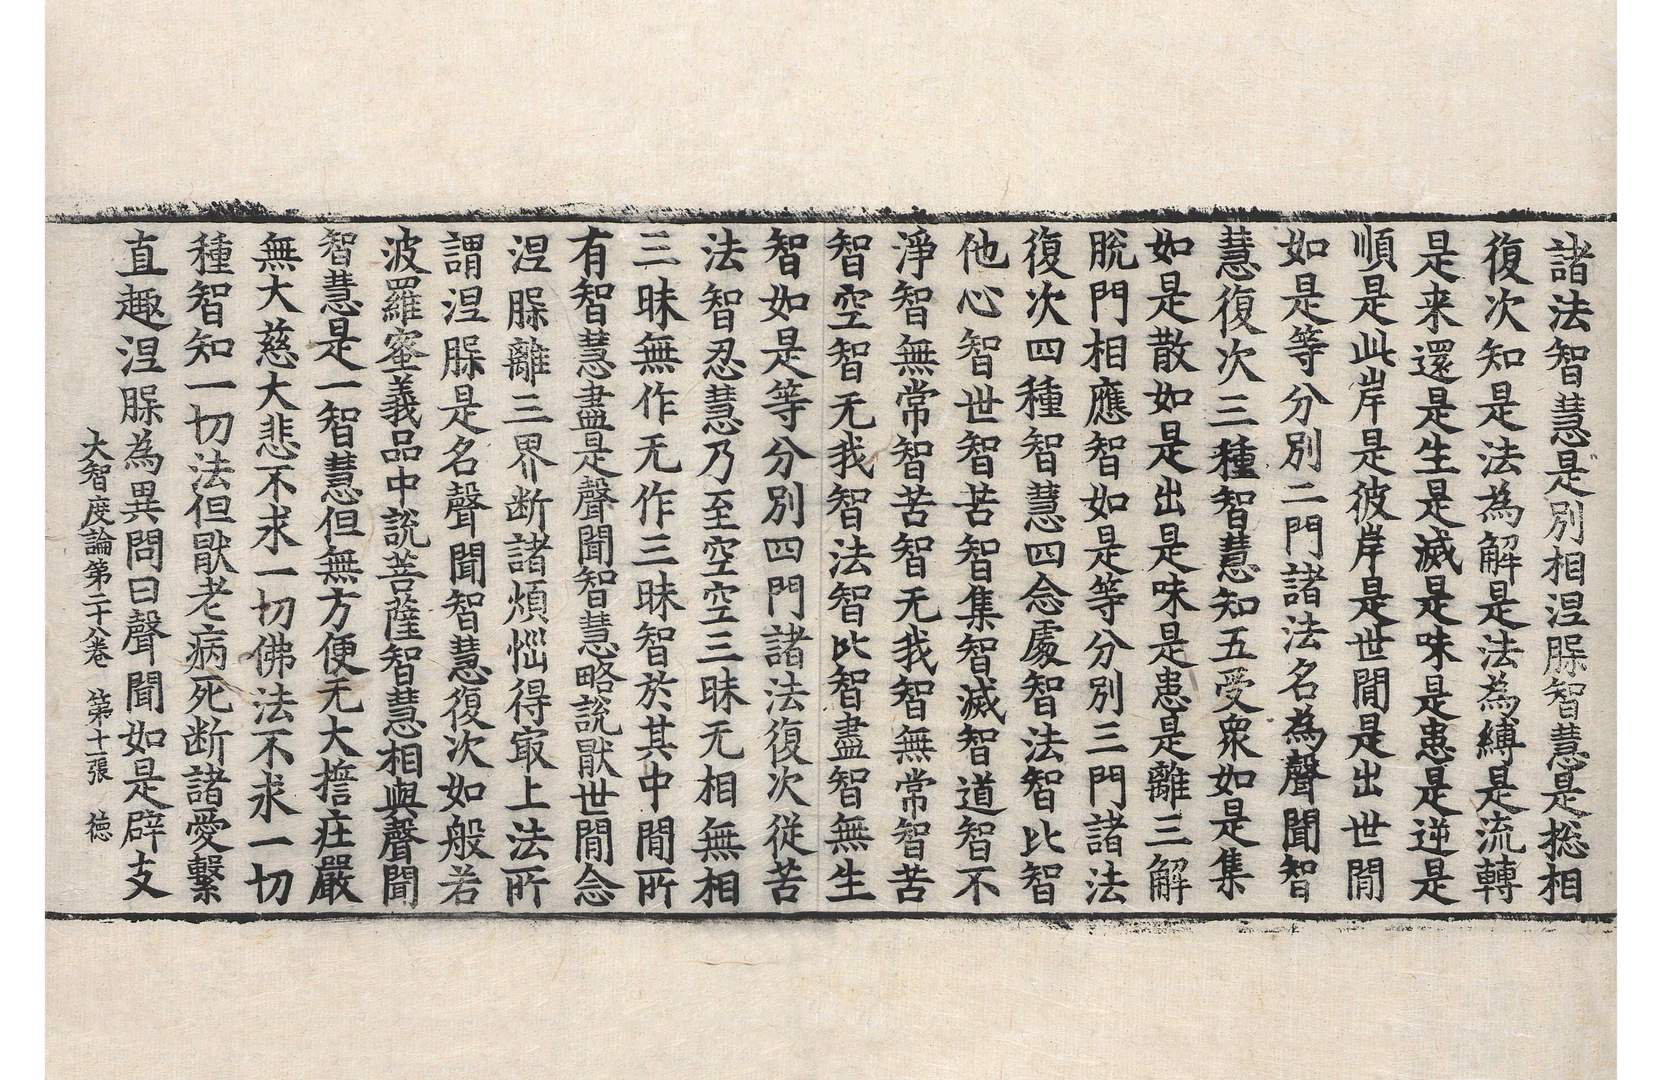 諸法智慧是別相涅脲智慧是捴相
復次知是法為解是法為縛是流轉
是来還是生是滅是味是患是逆是
順是此岸是彼岸是世閒是出世閒
如是等分別二門諸法名為聲聞智
慧復次三種智慧知五受衆如是集
如是散如是出是味是患是離三解
脫門相應智如是等分別三門諸法
復次四種智慧四念處智法智比智
他心智世智苦智集智滅智道智不
淨智無常智苦智无我智無常智苦
智空智无我智法智比智盡智無生
智如是等分別四門諸法復次從苦
法智忍慧乃至空空三昧无相無相
三昧無作无作三昧智於其中閒所
有智慧盡是聲聞智慧略說猒世閒念
涅脲離三界断諸煩惱得㝡上法所
謂涅脲是名聲聞智慧復次如般若
波羅蜜義品中說菩薩智慧相與聲聞
智慧是一智慧但無方便无大誓庄嚴
無大慈大悲不求一切佛法不求一切
種智知一切法但猒老病死断諸愛繫
直趣涅脲為異問曰聲聞如是辟支
大智度論第二十八卷 第十張 徳